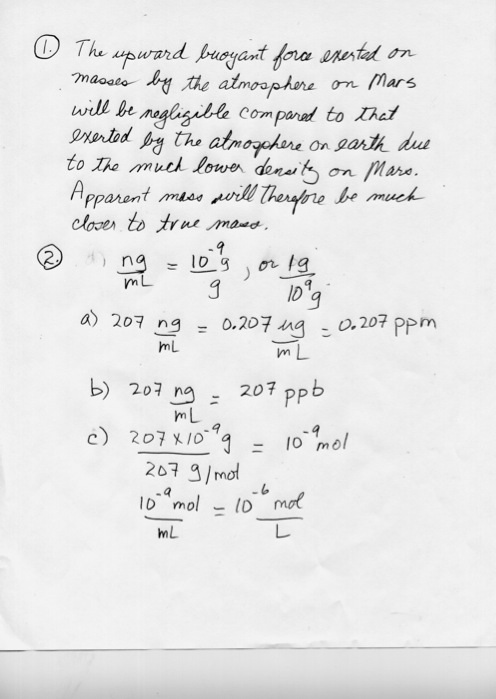 ① The upward buoyant force exerted on
masses by the atmosphere on Mars
will be negligible compared to that
exerted by the atmosphere on earth due
to the much lower density on Mars.
Apparent mass will therefore be much
closer to true mass.
② ng/mL = 10⁻⁹g/g , or 1g/10⁹g
a) 207 ng/mL = 0.207 ug/mL = 0.207 ppm
b) 207 ng/mL = 207 ppb
c) 207 x 10⁻⁹g / 207 g/mol = 10⁻⁹ mol
10⁻⁹ mol/mL = 10⁻⁶ mol/L